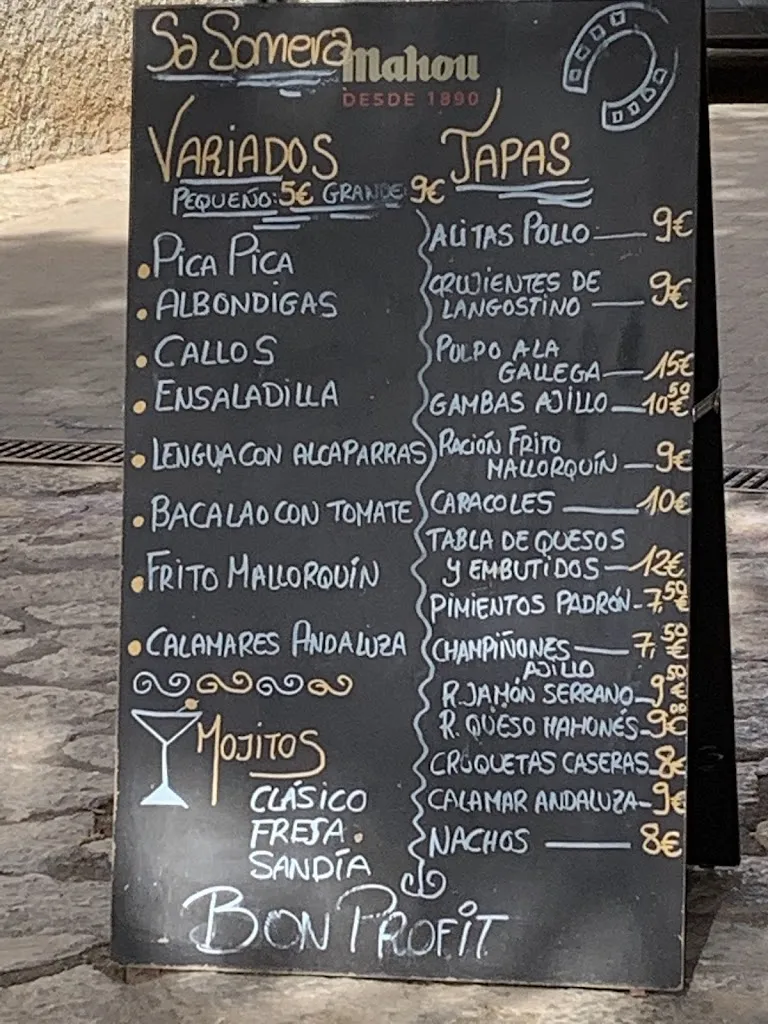 Sa Somera
Mahou
DESDE 1890
VARIADOS
PEQUEÑO: 5€ GRANDE: 9€
• PICA PICA
• ALBONDIGAS
• CALLOS
• ENSALADILLA
• LENGUA CON ALCAPARRAS
• BACALAO CON TOMATE
• FRITO MALLORQUÍN
• CALAMARES ANDALUZA
MOJITOS
CLÁSICO
FRESA.
SANDÍA
TAPAS
ALITAS POLLO — 9€
CRUJIENTES DE
LANGOSTINO — 9€
PULPO A LA
GALLEGA — 15€
GAMBAS AJILLO — 10,50€
RACIÓN FRITO
MALLORQUÍN — 9€
CARACOLES — 10€
TABLA DE QUESOS
Y EMBUTIDOS — 12€
PIMIENTOS PADRÓN - 7,50€
CHAMPIÑONES — 7,50€
AJILLO
R. JAMÓN SERRANO - 9,50€
R. QUESO MAHONÉS - 9,00€
CROQUETAS CASERAS - 8€
CALAMAR ANDALUZA - 9€
NACHOS — 8€
BON PROFIT